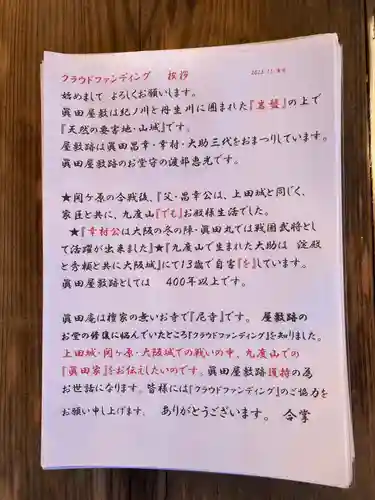 クラウドファンディング 挨拶
始めまして よろしくお願いします。
眞田屋敷は紀ノ川と丹生川に囲まれた『岩盤』の上で
『天然の要害地・山城』です。
屋敷跡は眞田昌幸・幸村・大助三代をおまつりしています。
眞田屋敷跡のお堂守の渡部恵光です。
★関ヶ原の合戦後、『父・昌幸公は、上田城と同じく、
家臣と共に、九度山『でも』お殿様生活でした。
★『幸村公は大阪の冬の陣・眞田丸では戦国武将とし
て活躍が出来ました』★『九度山で生まれた大助は 淀殿
と秀頼と共に大阪城』にて13歳で自害『を』しています。
眞田屋敷跡としては 400年以上です。
眞田庵は檀家の無いお寺で『尼寺』です。 屋敷跡の
お堂の修復に悩んでいたところ『クラウドファンディング』を知りました。
上田城・関ヶ原・大阪城での戦いの中、九度山での
『眞田家』をお伝えしたいのです。眞田屋敷跡護持の為
お世話になります。皆様には『クラウドファンディング』のご協力を
お願い申し上げます。 ありがとうございます。 合掌